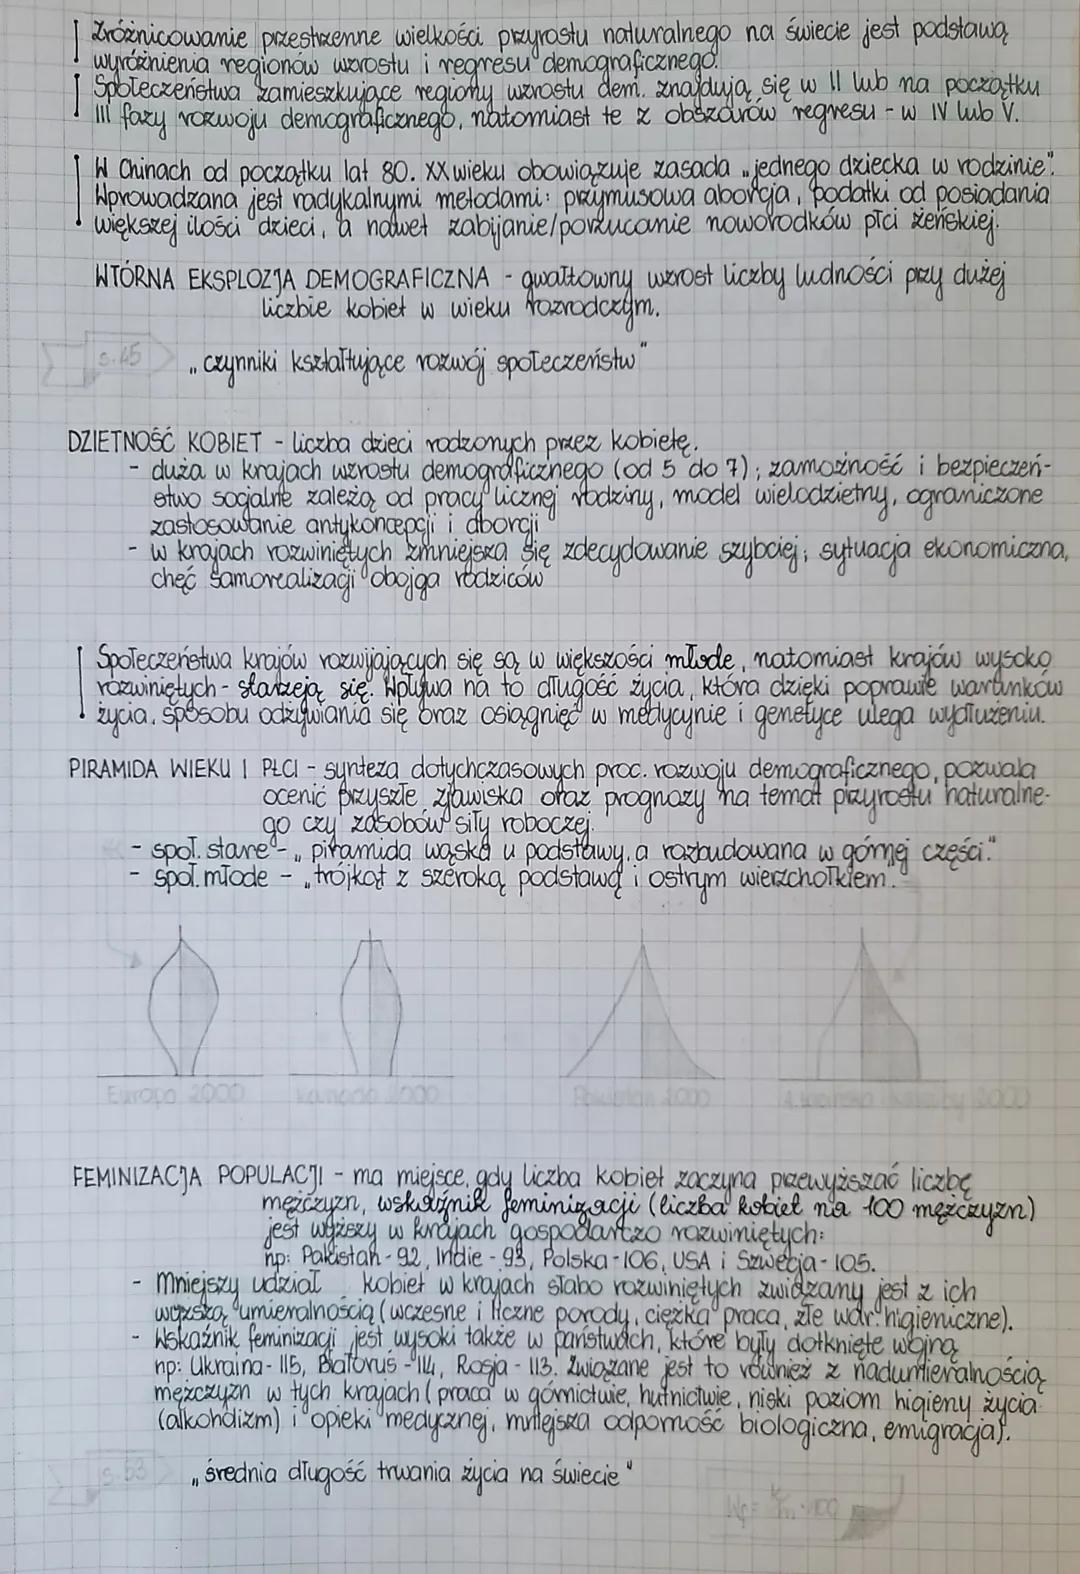 Zróżnicowanie przestrzenne wielkości przyrostu naturalnego na świecie jest podstawą
wyróżnienia regionów wzrostu i regresu demograficznego.
Społeczeństwa zamieszkujące regiony wzrostu dem. znajdują się w II lub na początku
III fazy rozwoju demograficznego, natomiast te z obszarów regresu - w IV lub V.
W Chinach od początku lat 80. XX wieku obowiązuje zasada „jednego dziecka w rodzinie".
Wprowadzana jest radykalnymi metodami: przymusowa aborcja, podatki od posiadania
większej ilości dzieci, a nawet zabijanie/porzucanie noworodków płci żeńskiej.
WTÓRNA EKSPLOZJA DEMOGRAFICZNA - gwałtowny wzrost liczby ludności przy dużej
liczbie kobiet w wieku rozrodczym.
s.45 „czynniki kształtujące rozwój społeczeństw"
DZIETNOŚĆ KOBIET - liczba dzieci rodzonych przez kobietę.
- duża w krajach wzrostu demograficznego (od 5 do 7); zamożność i bezpieczeń-
stwo socjalne zależą od pracy licznej rodziny, model wielodzietny, ograniczone
zastosowanie antykoncepcji i aborcji
- w krajach rozwiniętych zmniejsza się zdecydowanie szybciej; sytuacja ekonomiczna,
chęć samorealizacji obojga rodziców
Społeczeństwa krajów rozwijających się są w większości młode, natomiast krajów wysoko
rozwiniętych - starzeją się. Wpływa na to długość życia, która dzięki poprawie warunków
życia, sposobu odżywiania się oraz osiągnięć w medycynie i genetyce ulega wydłużeniu.
PIRAMIDA WIEKU I PŁCI - synteza dotychczasowych proc. rozwoju demograficznego, pozwala
ocenić przyszłe zjawiska oraz prognozy na temat przyrostu naturalne-
go czy zasobów siły roboczej.
- społ. stare - „piramida wąska u podstawy, a rozbudowana w górnej części."
- społ. młode - „trójkąt z szeroką podstawą i ostrym wierzchołkiem."
Europa 2000 Kanada 2000 Pakistan 2000 Ameryka 2000
FEMINIZACJA POPULACJI - ma miejsce, gdy liczba kobiet zaczyna przewyższać liczbę
mężczyzn, wskaźnik feminizacji (liczba kobiet na 100 mężczyzn)
jest wyższy w krajach gospodarczo rozwiniętych:
np: Pakistan - 92, Indie - 93, Polska - 106, USA i Szwecja - 105.
- Mniejszy udział kobiet w krajach słabo rozwiniętych związany jest z ich
wyższą umieralnością (wczesne i liczne porody, ciężka praca, złe war. higieniczne).
- Wskaźnik feminizacji jest wysoki także w państwach, które były dotknięte wojną
np: Ukraina - 115, Białoruś - 114, Rosja - 113. Związane jest to również z nadumieralnością
mężczyzn w tych krajach (praca w górnictwie, hutnictwie, niski poziom higieny życia
(alkoholizm) i opieki medycznej, mniejsza odporność biologiczna, emigracja).
s.53 „średnia długość trwania życia na świecie"